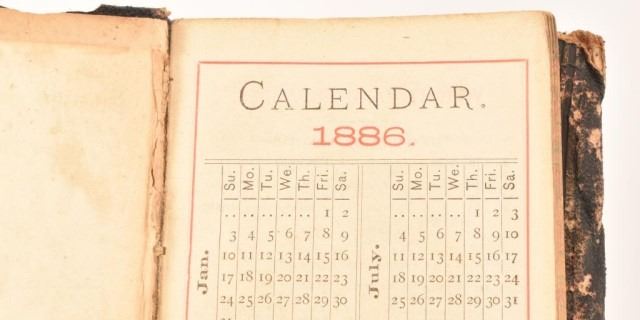 CALENDAR.
1886.
Su. Mo. Tu. We. Th. Fri. Sa. Su. Mo. Tu. We. Th. Fri. Sa.
Jan. July.
.. .. .. .. .. 1 2 .. .. .. .. 1 2 3
3 4 5 6 7 8 9 4 5 6 7 8 9 10
10 11 12 13 14 15 16 11 12 13 14 15 16 17
17 18 19 20 21 22 23 18 19 20 21 22 23 24
24 25 26 27 28 29 30 25 26 27 28 29 30 31